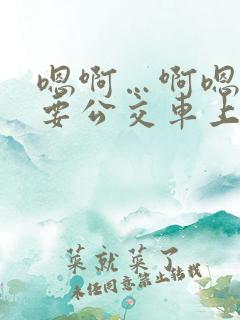 嗯啊…啊嗯
要公交车上
菜就菜了
未经同意禁止转载